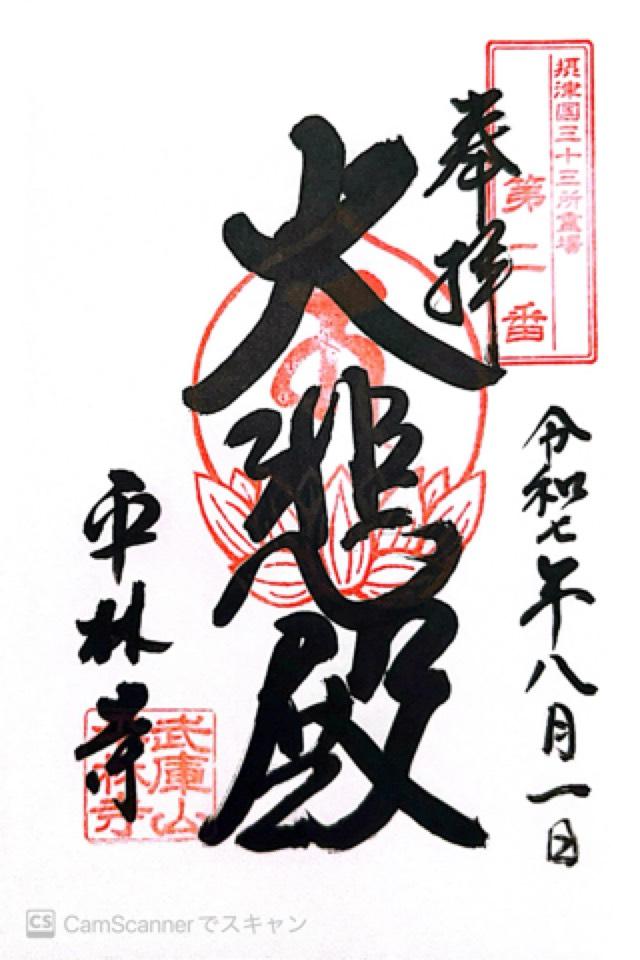 摂津国三十三所霊場
第二番
奉拝
令和七年八月一日
大悲殿
平林寺
武庫山
平林寺
CS CamScannerでスキャン